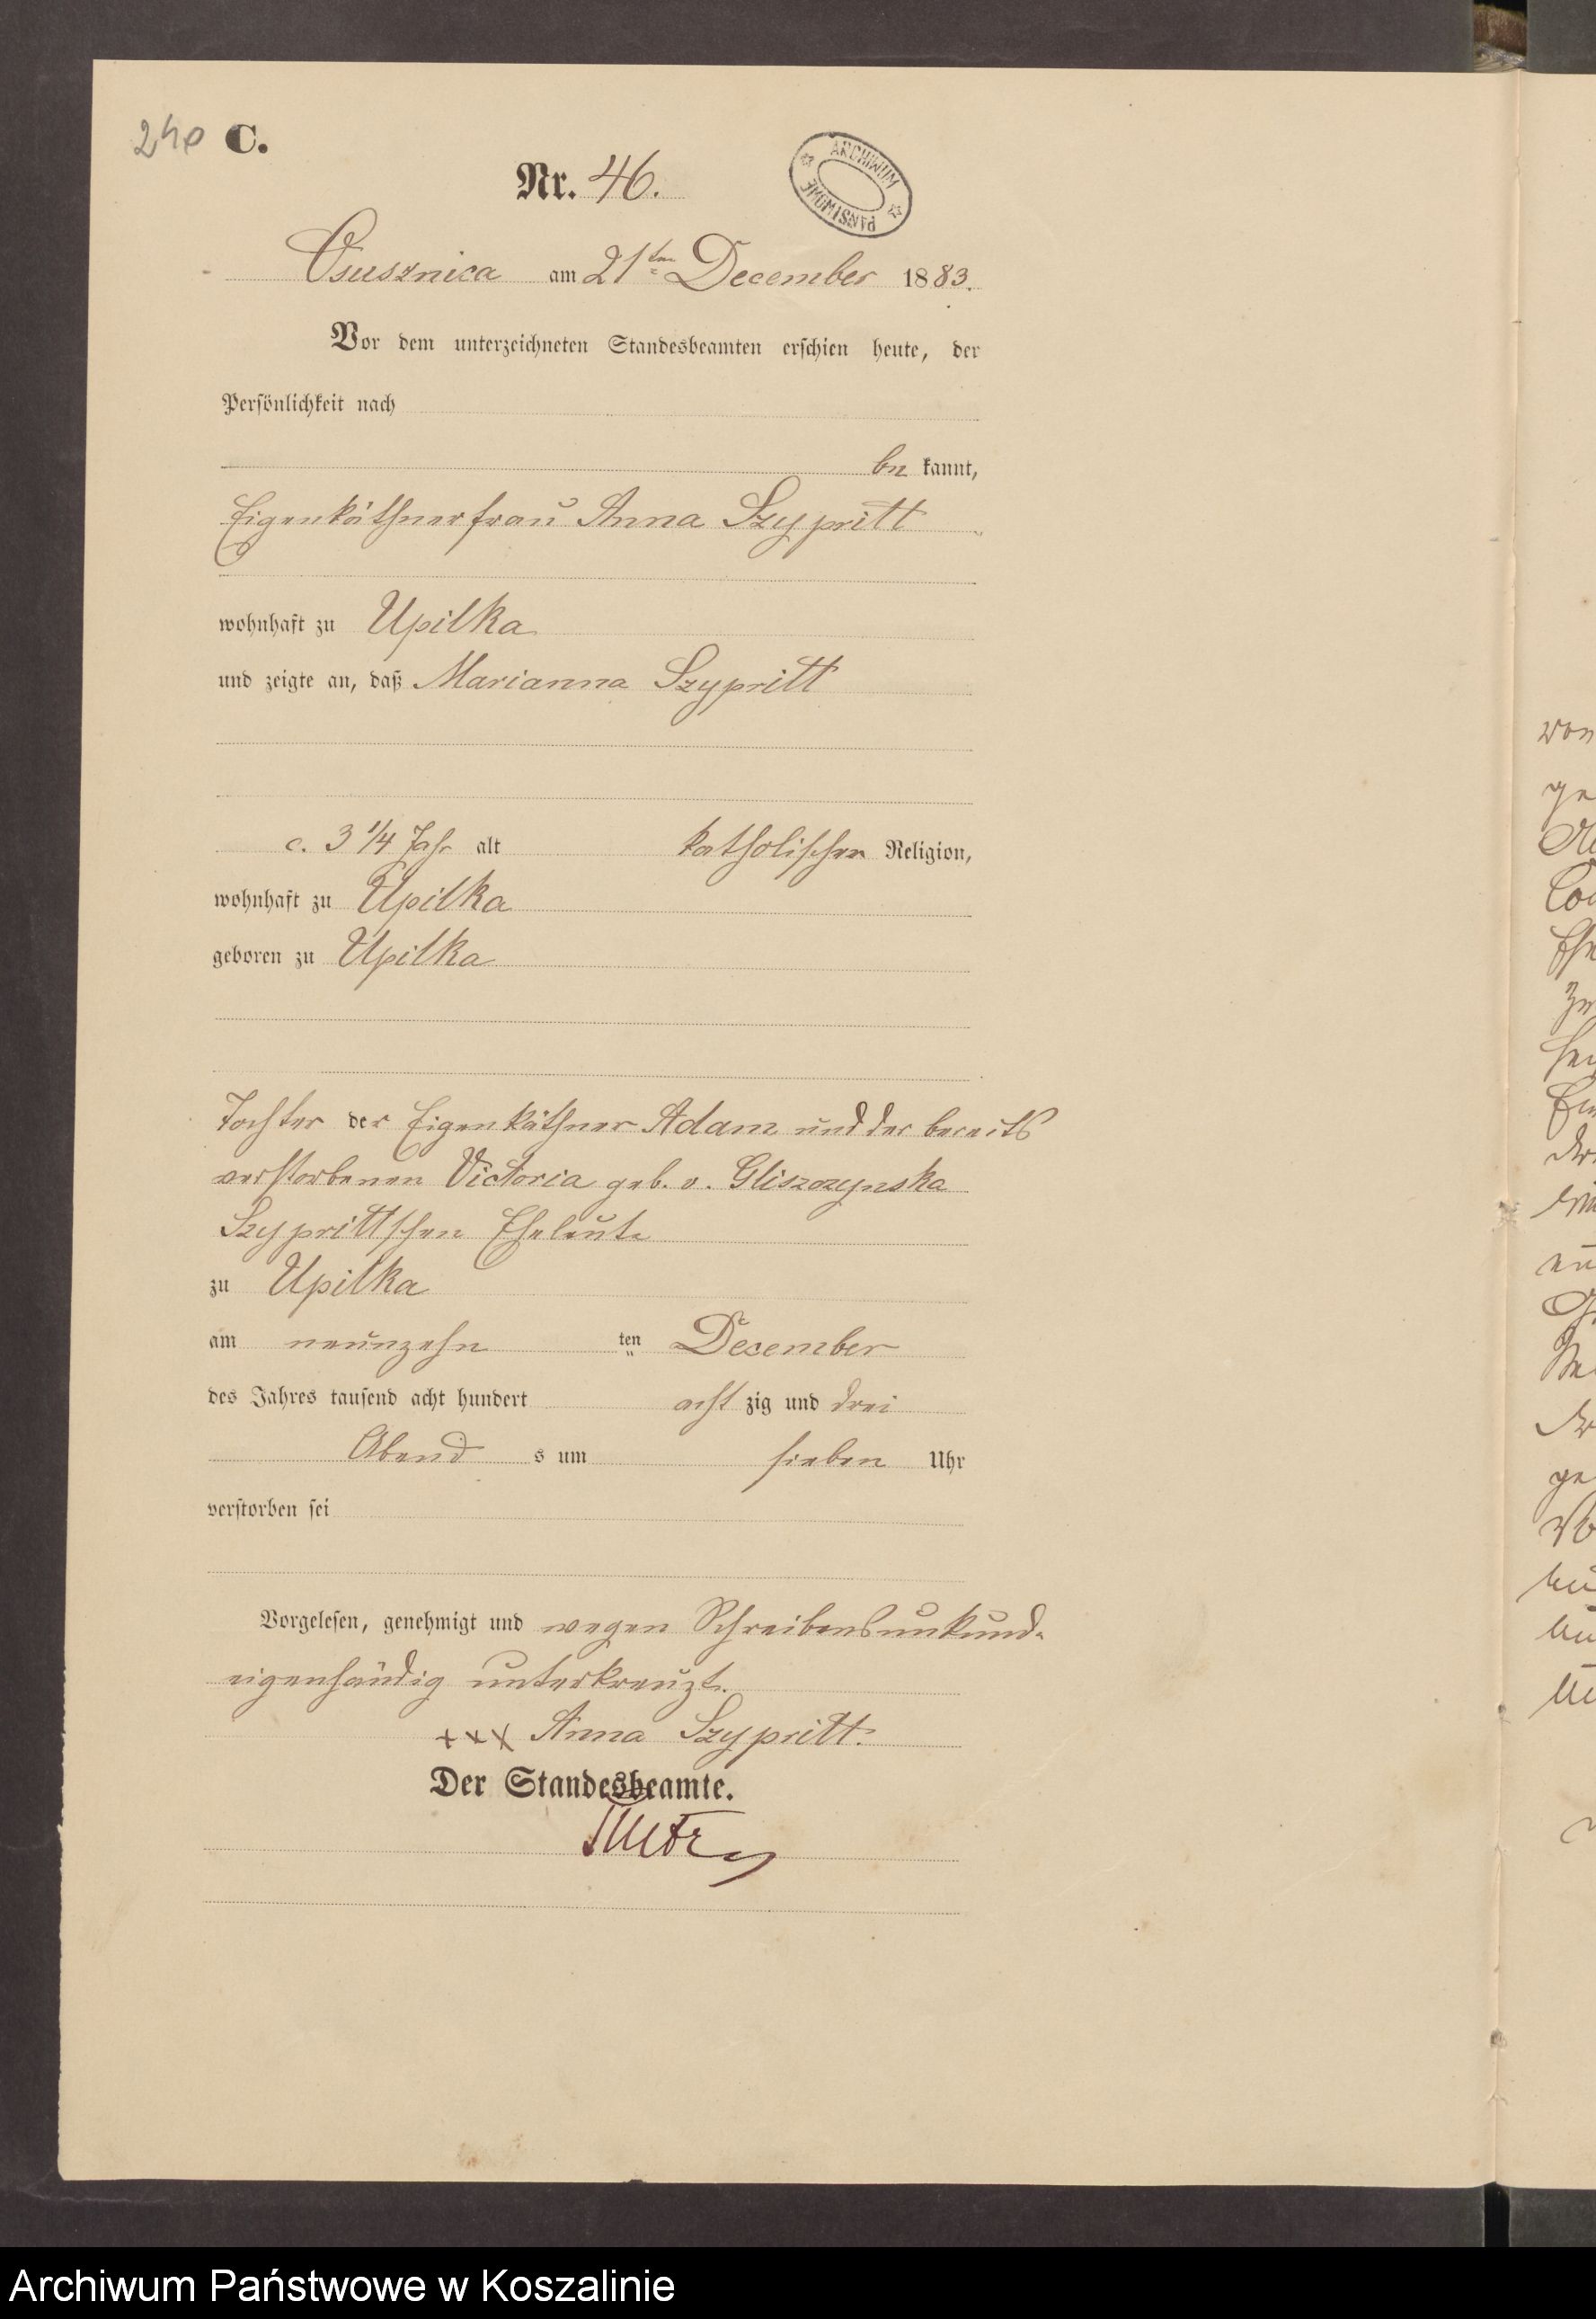 240 C.
Nr. 46.
ARCHIWUM PAŃSTWOWE
Ossusznica am 21ten December 1883.
Vor dem unterzeichneten Standesbeamten erschien heute, der
Persönlichkeit nach
be kannt,
Eigenkäthnerfrau Anna Szypritt
wohnhaft zu Upilka
und zeigte an, daß Marianna Szypritt
c. 3 1/4 Jahr alt katholischer Religion,
wohnhaft zu Upilka
geboren zu Upilka
Tochter der Eigenkäthner Adam und der bereits
verstorbenen Victoria geb. v. Gliszczynska
Szyprittschen Eheleute
zu Upilka
am neunzehn ten December
des Jahres tausend acht hundert acht zig und drei
Abend s um sieben Uhr
verstorben sei
Vorgelesen, genehmigt und wegen Schreibensunkunde
eigenhändig unterkreuzt.
+++ Anna Szypritt.
Der Standesbeamte.
Archiwum Państwowe w Koszalinie